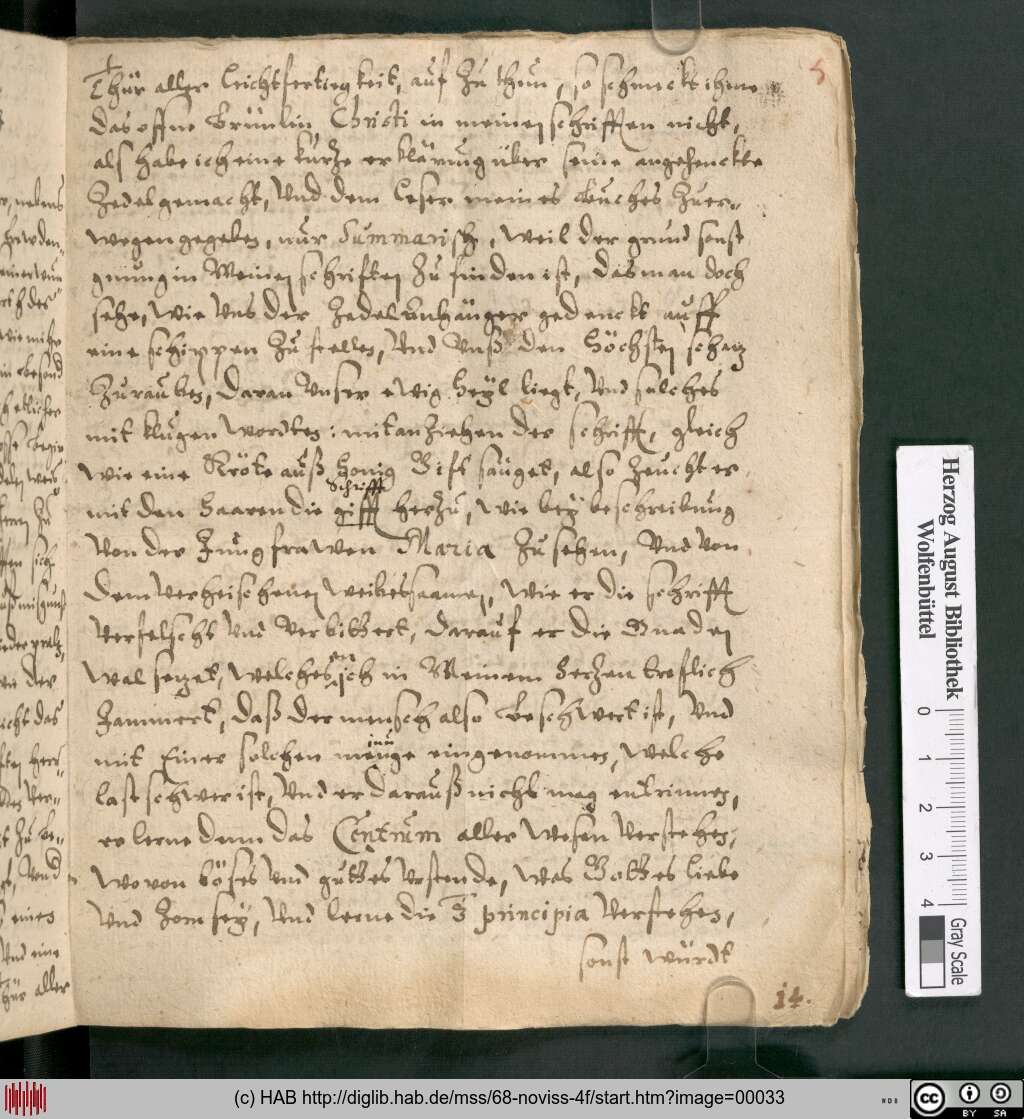 Thür aller leichtfertiegkeit, auf zu thun, so schmeckt ihme
das offne Brünlin Christi in meinen schrifften nicht,
als habe ich eine kurze erklärung über seine angehenckte
Zedel gemacht, Und dem Leser meines Buches zuer-
wegen gegeben, nur Summarisch, weil der grund sonst
gnung in Meinen schriften zu finden ist, das man doch
sehe, wie uns der Zedel anhänger gedenckt auff
eine schippen zu stellen, Und Unß den Höchsten schatz
Zurauben, daran Unser ewig Heyl liegt, Und sulches
mit klugen wordten: mit anziehen der schrifft, gleich
wie eine Kröte auß Honig Gift sauget, also zeucht er
mit den Haaren die gifft Schrifft herzu, wie bey beschreibung
Von der Jungfrawen Maria zu sehen, Und von
dem Verheischenen weibessaamen, wie er die schrifft
Verfelscht Und Verbittert, darauf er die Gnaden
wal setzet, welches en ich in Meinem Herzen treflich
Jammert, daß der mensch also Beschwert ist, Und
mit Einer solchen meinunge eingenommen, welche
last schwer ist, Und er darauß nicht mag entrinnen,
er lerne denn das Centrum aller wesen Verstehen;
wovon böses Und guttes Urstende, Was Gottes liebe
Und Zorn sey, Und lerne die 3 principia Verstehen,
sonst würdt
5
14.
Herzog August Bibliothek
Wolfenbüttel
0 1 2 3 4
Gray Scale
(c) HAB http://diglib.hab.de/mss/68-noviss-4f/start.htm?image=00033
CC BY SA